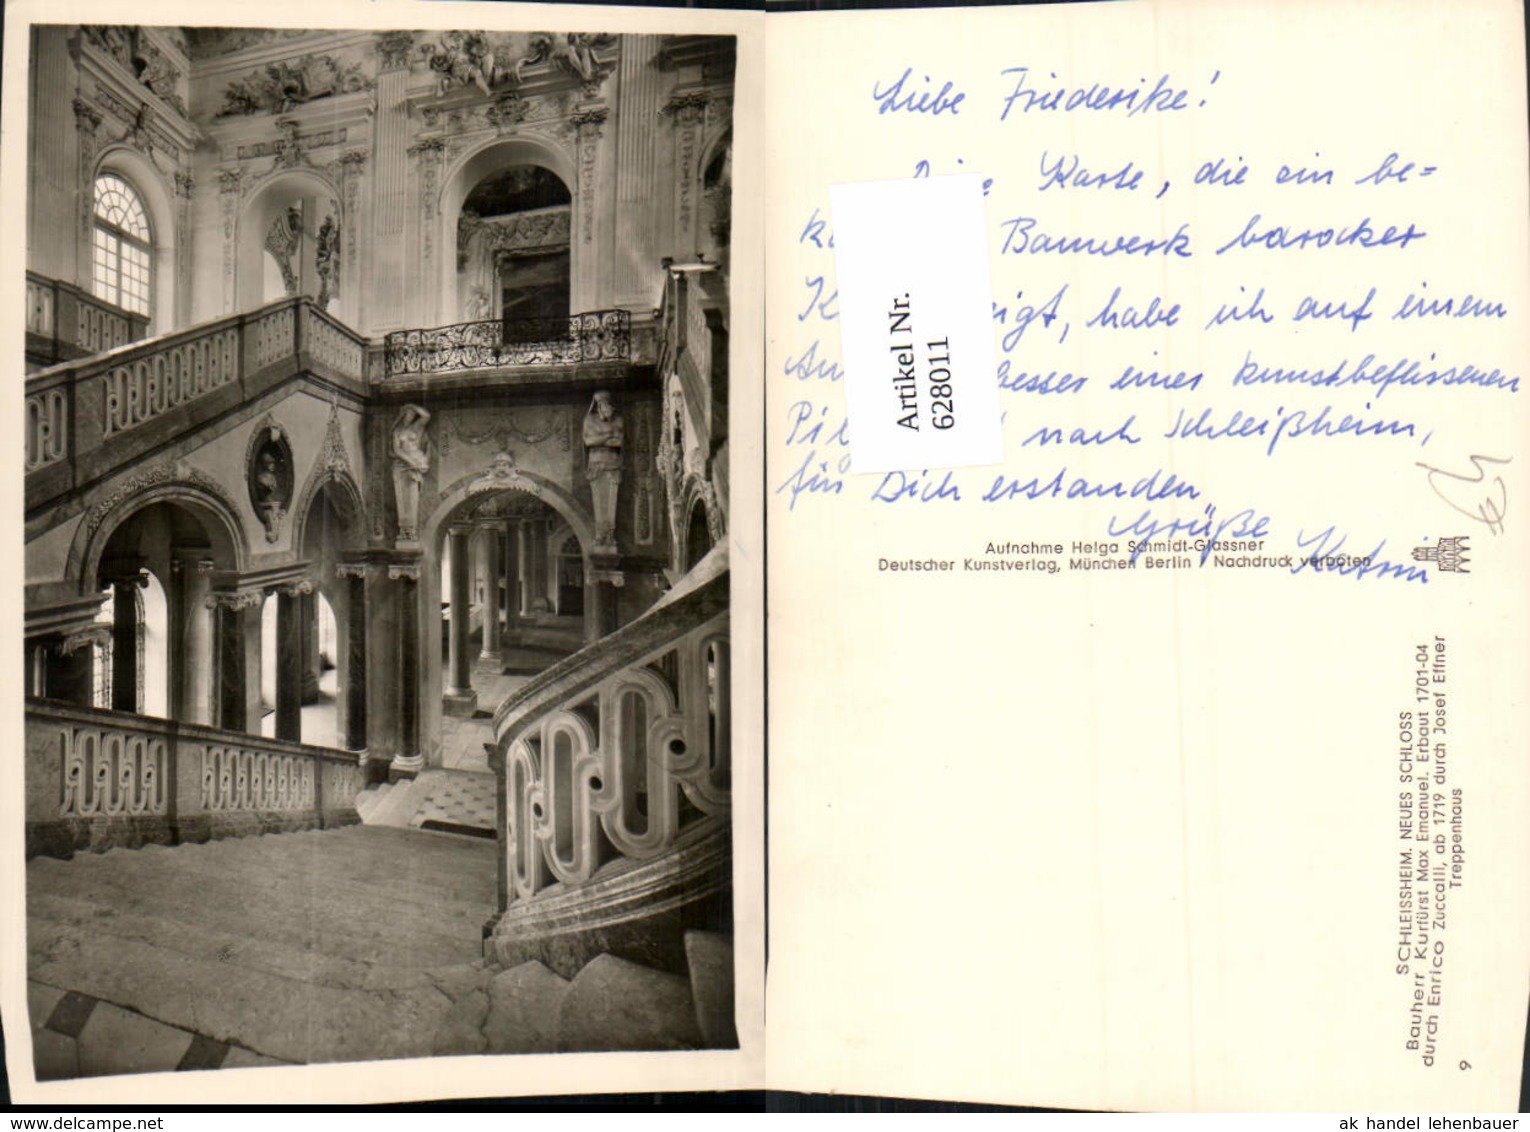 Liebe Friederike!
Karte, die ein be=
Bauwerk barocker
habe ich auf einem
besser einer kunstbeflissenen
nach Schleißheim,
für Dich erstanden
Grüße
Katrin
Artikel Nr.
628011
Aufnahme Helga Schmidt-Glassner
Deutscher Kunstverlag, München Berlin / Nachdruck verboten
SCHLEISSHEIM. NEUES SCHLOSS
Bauherr Kurfürst Max Emanuel. Erbaut 1701-04
durch Enrico Zuccalli, ab 1719 durch Josef Effner
Treppenhaus
9
www.delcampe.net
ak handel lehenbauer